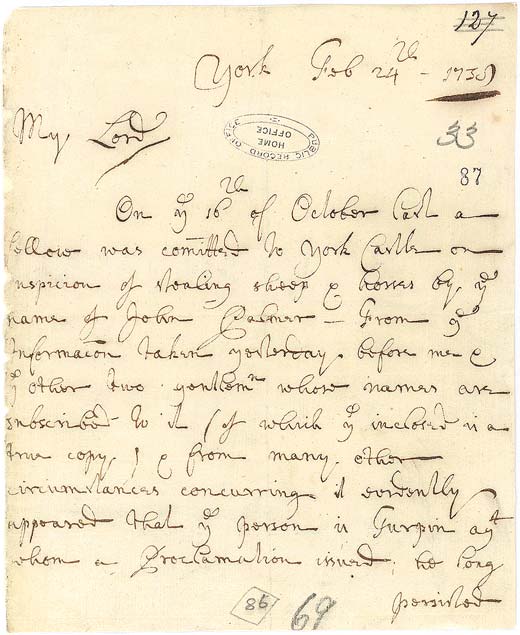 127
York Feb 24th - 1738
My Lord
PUBLIC RECORD OFFICE
HOME OFFICE
33
87
On ye 16th of October last a
fellow was comitted to York Castle on
suspicion of stealing sheep & horses by ye
name of John Palmer - From ye
Informacon taken yesterday before me &
ye other two gentlemn whose names are
subscribed to it (of which ye inclosed is a
true copy) & from many other
circumstances concurring it evidently
appeared that ye person is Turpin agt
whom a Proclamation issued; he long
persisted
86
69